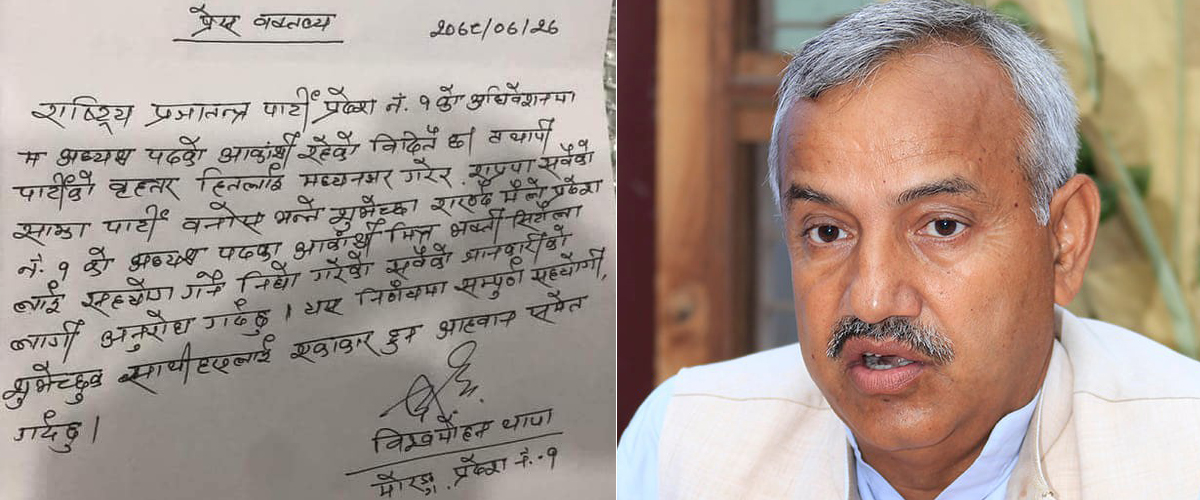 प्रेस वक्तव्य
२०७८/०८/२८
राष्ट्रिय प्रजातन्त्र पार्टी प्रदेश नं. १ को अधिवेशनमा
म अध्यक्ष पदको आकांक्षी रहेको विदितै छ। तथापी
पार्टीको वृहत्तर हितलाई मध्यनजर गरेर, राप्रपा सबैको
साझा पार्टी बनोस भन्ने शुभेच्छा राख्दै मैले प्रदेश
नं. १ को अध्यक्ष पदका आकांक्षी मित्र भक्ती सिटौला
लाई सहयोग गर्ने निर्धो गरेको सबैको जानकारीको
लागी अनुरोध गर्दछु । यस निर्णयमा सम्पुर्ण सहयोगी,
शुभेच्छुक साथीहरुलाई एकाकार हुन आह्वान समेत
गर्दछु ।
विश्वमोहन थापा
मोरङ्ग, प्रदेश नं.-१